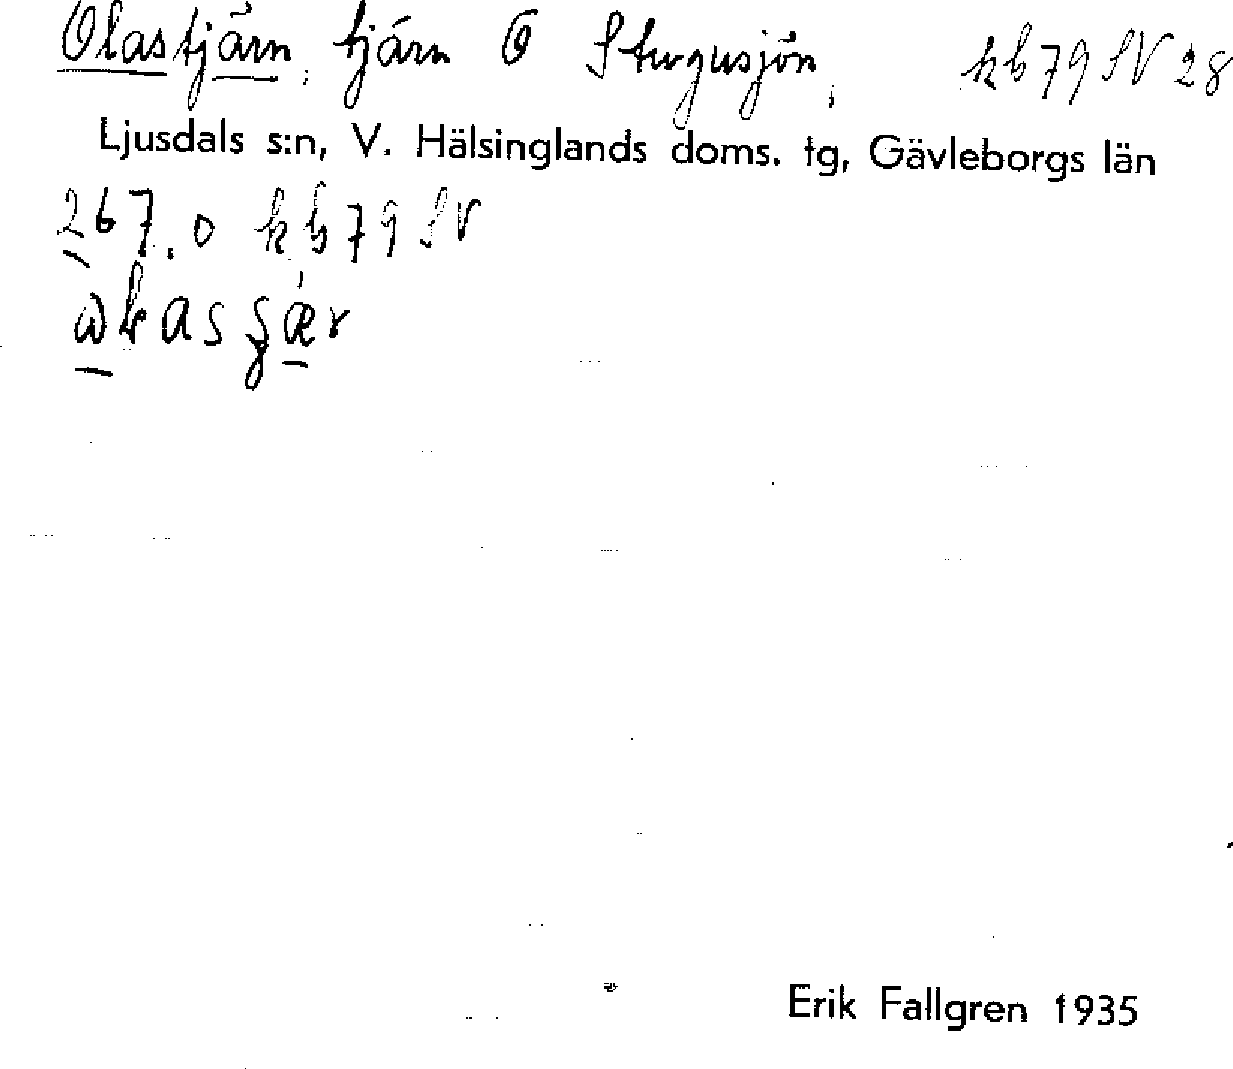 Olastjärn, tjärn Ö Sturgusjön, kb79SV28
Ljusdals s:n, V. Hälsinglands doms. tg, Gävleborgs län
267.0 kb79SV
Erik Fallgren 1935